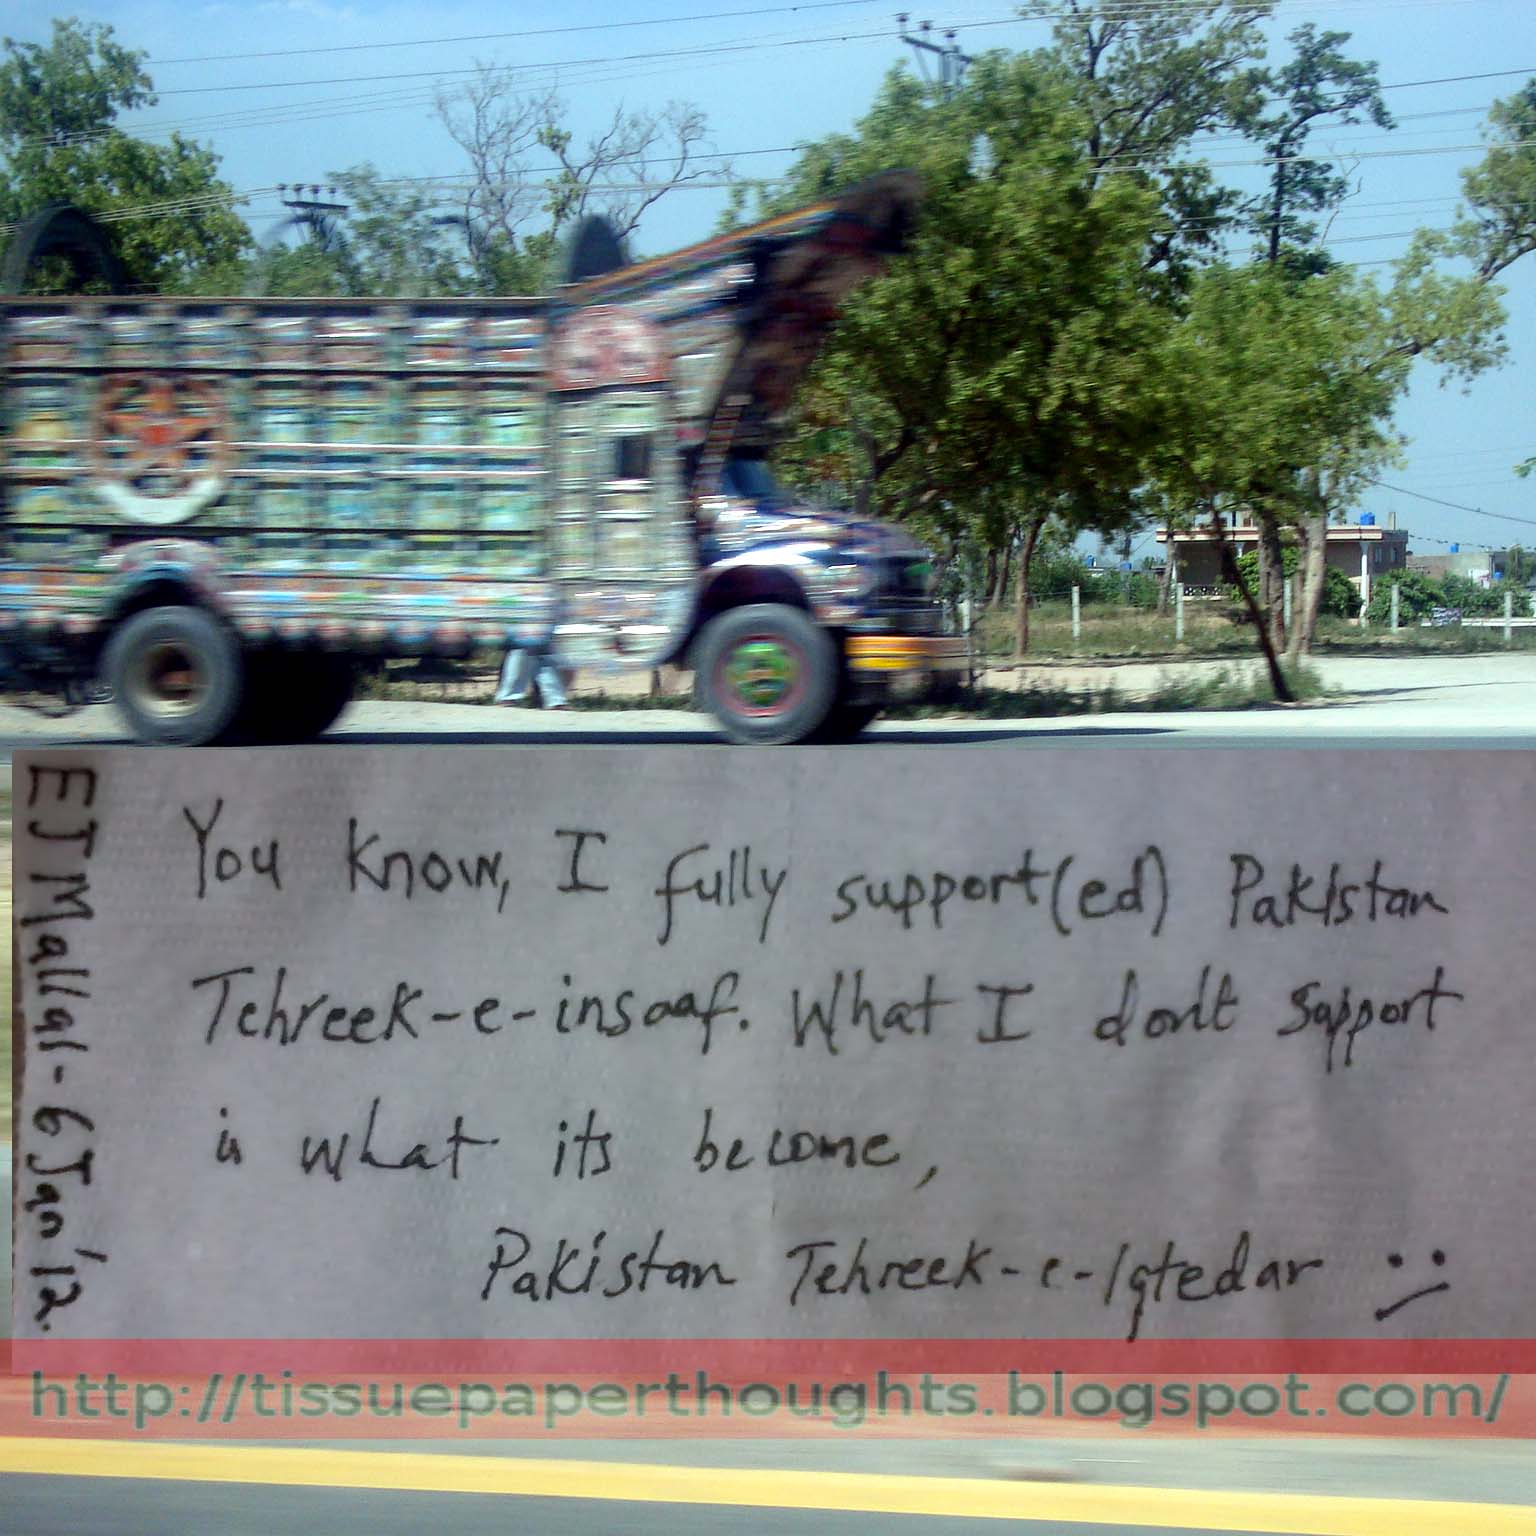 You know, I fully support(ed) Pakistan
Tehreek-e-insaaf. What I don't support
is what its become,
Pakistan Tehreek-e-Iqtedar :/
EJ Mallal - 6 Jan'12.
http://tissuepaperthoughts.blogspot.com/